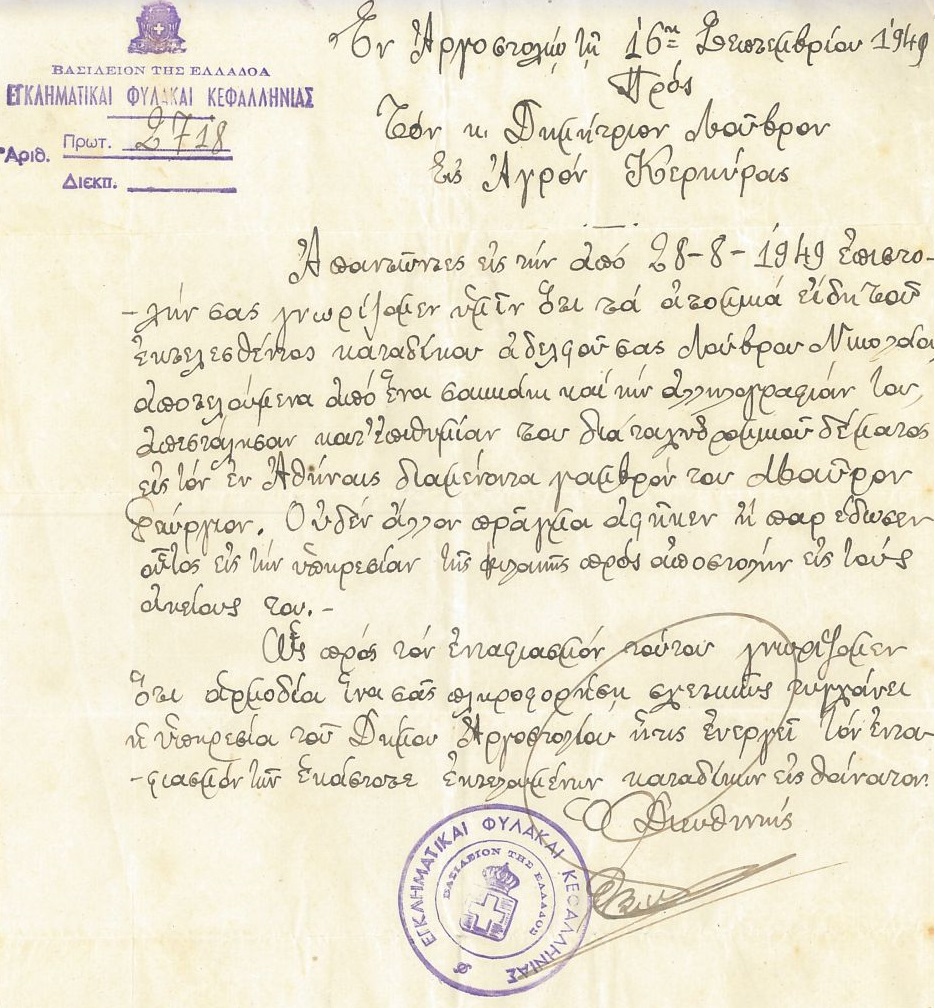 ΒΑΣΙΛΕΙΟΝ ΤΗΣ ΕΛΛΑΔΟΣ
ΕΓΚΛΗΜΑΤΙΚΑΙ ΦΥΛΑΚΑΙ ΚΕΦΑΛΛΗΝΙΑΣ
Ἀριθ. Πρωτ. 2718
Διεκπ.
Ἐν Ἀργοστολίῳ τῇ 16ῃ Σεπτεμβρίου 1949
Πρός
Τόν κ. Δημήτριον Λοῦβρον
Εἰς Ἀγρόν Κερκύρας
Ἀπαντῶντες εἰς τήν ἀπό 28-8-1949 ἐπιστο-
-λήν σας γνωρίζομεν ὑμῖν ὅτι τά ἀτομικά εἴδη τοῦ
ἐκτελεσθέντος καταδίκου ἀδελφοῦ σας Λούβρου Νικολάου
ἀποτελούμενα ἀπό ἕνα σακκάκι καί τήν ἀλληλογραφίαν του,
ἀπεστάλησαν κατ' ἐπιθυμίαν του διά ταχυδρομικοῦ δέματος
εἰς τόν ἐν Ἀθήναις διαμένοντα γαμβρόν του Μαῦρον
Γεώργιον. Οὐδέν ἄλλον πρᾶγμα ἀφῆκεν ἤ παρέδωσεν
οὗτος εἰς τήν ὑπηρεσίαν τῆς φυλακῆς πρός ἀποστολήν εἰς τούς
οἰκείους του.-
Ὡς πρός τόν ἐνταφιασμόν τούτου γνωρίζομεν
ὅτι ἁρμοδία ἵνα σᾶς πληροφορήσῃ σχετικῶς τυγχάνει
ἡ ὑπηρεσία τοῦ Δήμου Ἀργοστολίου ἥτις ἐνεργεῖ τόν ἐντα-
-φιασμόν τῶν ἑκάστοτε ἐκτελουμένων καταδίκων εἰς θάνατον.
Ὁ Διευθυντής
ΕΓΚΛΗΜΑΤΙΚΑΙ ΦΥΛΑΚΑΙ ΚΕΦΑΛΛΗΝΙΑΣ
ΒΑΣΙΛΕΙΟΝ ΤΗΣ ΕΛΛΑΔΟΣ